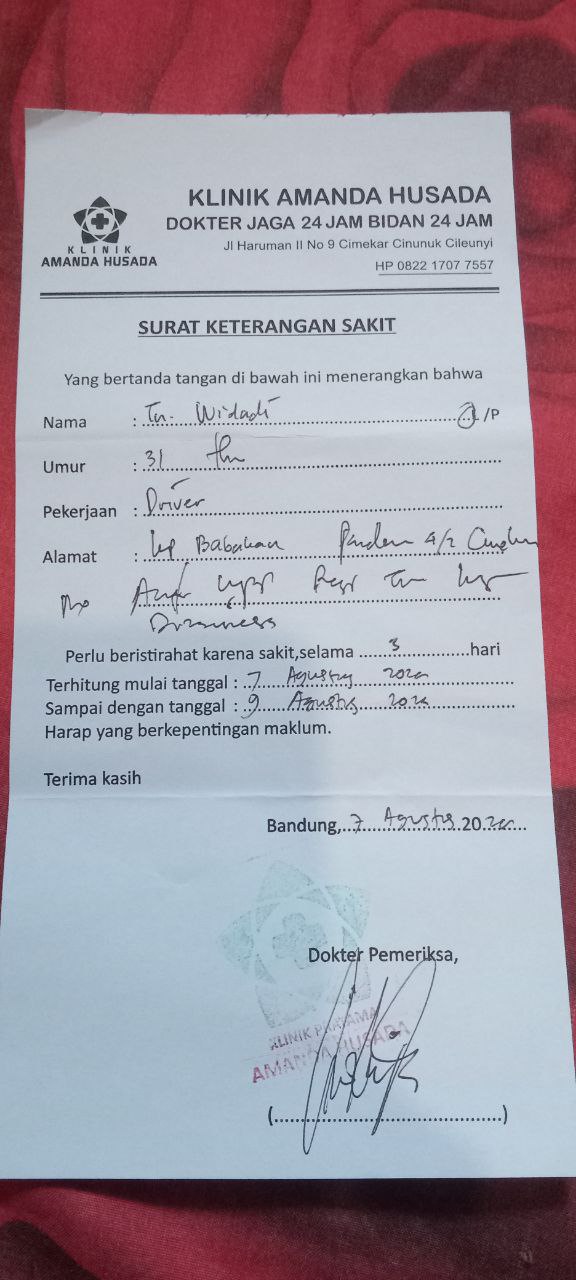 KLINIK AMANDA HUSADA
DOKTER JAGA 24 JAM BIDAN 24 JAM
Jl Haruman II No 9 Cimekar Cinunuk Cileunyi
HP 0822 1707 7557
KLINIK
AMANDA HUSADA
SURAT KETERANGAN SAKIT
Yang bertanda tangan di bawah ini menerangkan bahwa
Nama : Tn. Widadi /P
Umur : 31 thn
Pekerjaan : Driver
Alamat : kp Babakan 4/2
Perlu beristirahat karena sakit,selama 3 hari
Terhitung mulai tanggal : 7 Agustus
Sampai dengan tanggal : 9 Agustus
Harap yang berkepentingan maklum.
Terima kasih
Bandung, 7 Agustus 20
Dokter Pemeriksa,
KLINIK PRATAMA
AMANDA HUSADA
(..............................)